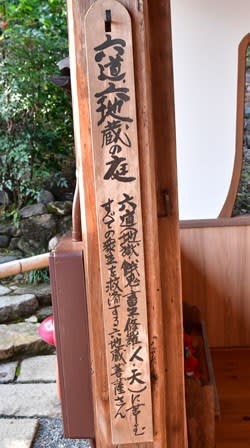 六道六地蔵の庭
六道(地獄 餓鬼 畜生 修羅 人 天)に車む
すべての衆生を救済する六地蔵菩薩さん